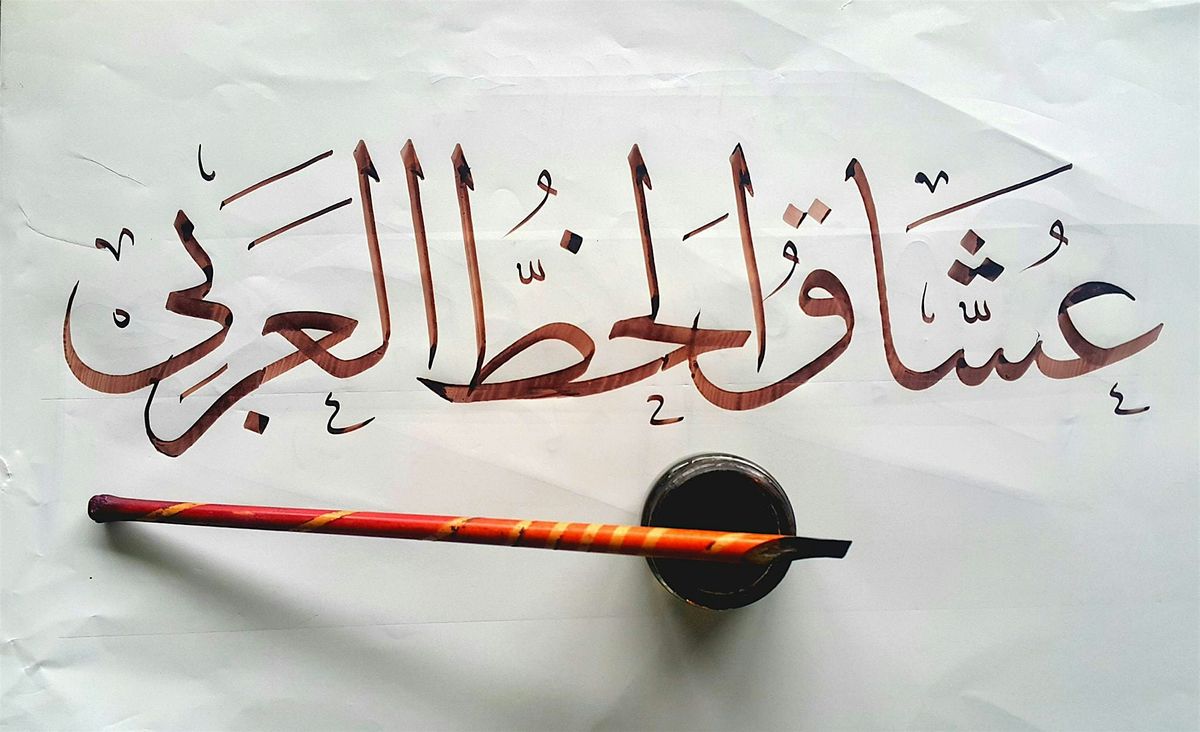 عُشَّاقُ الخَطُّ العَرَبِيْ